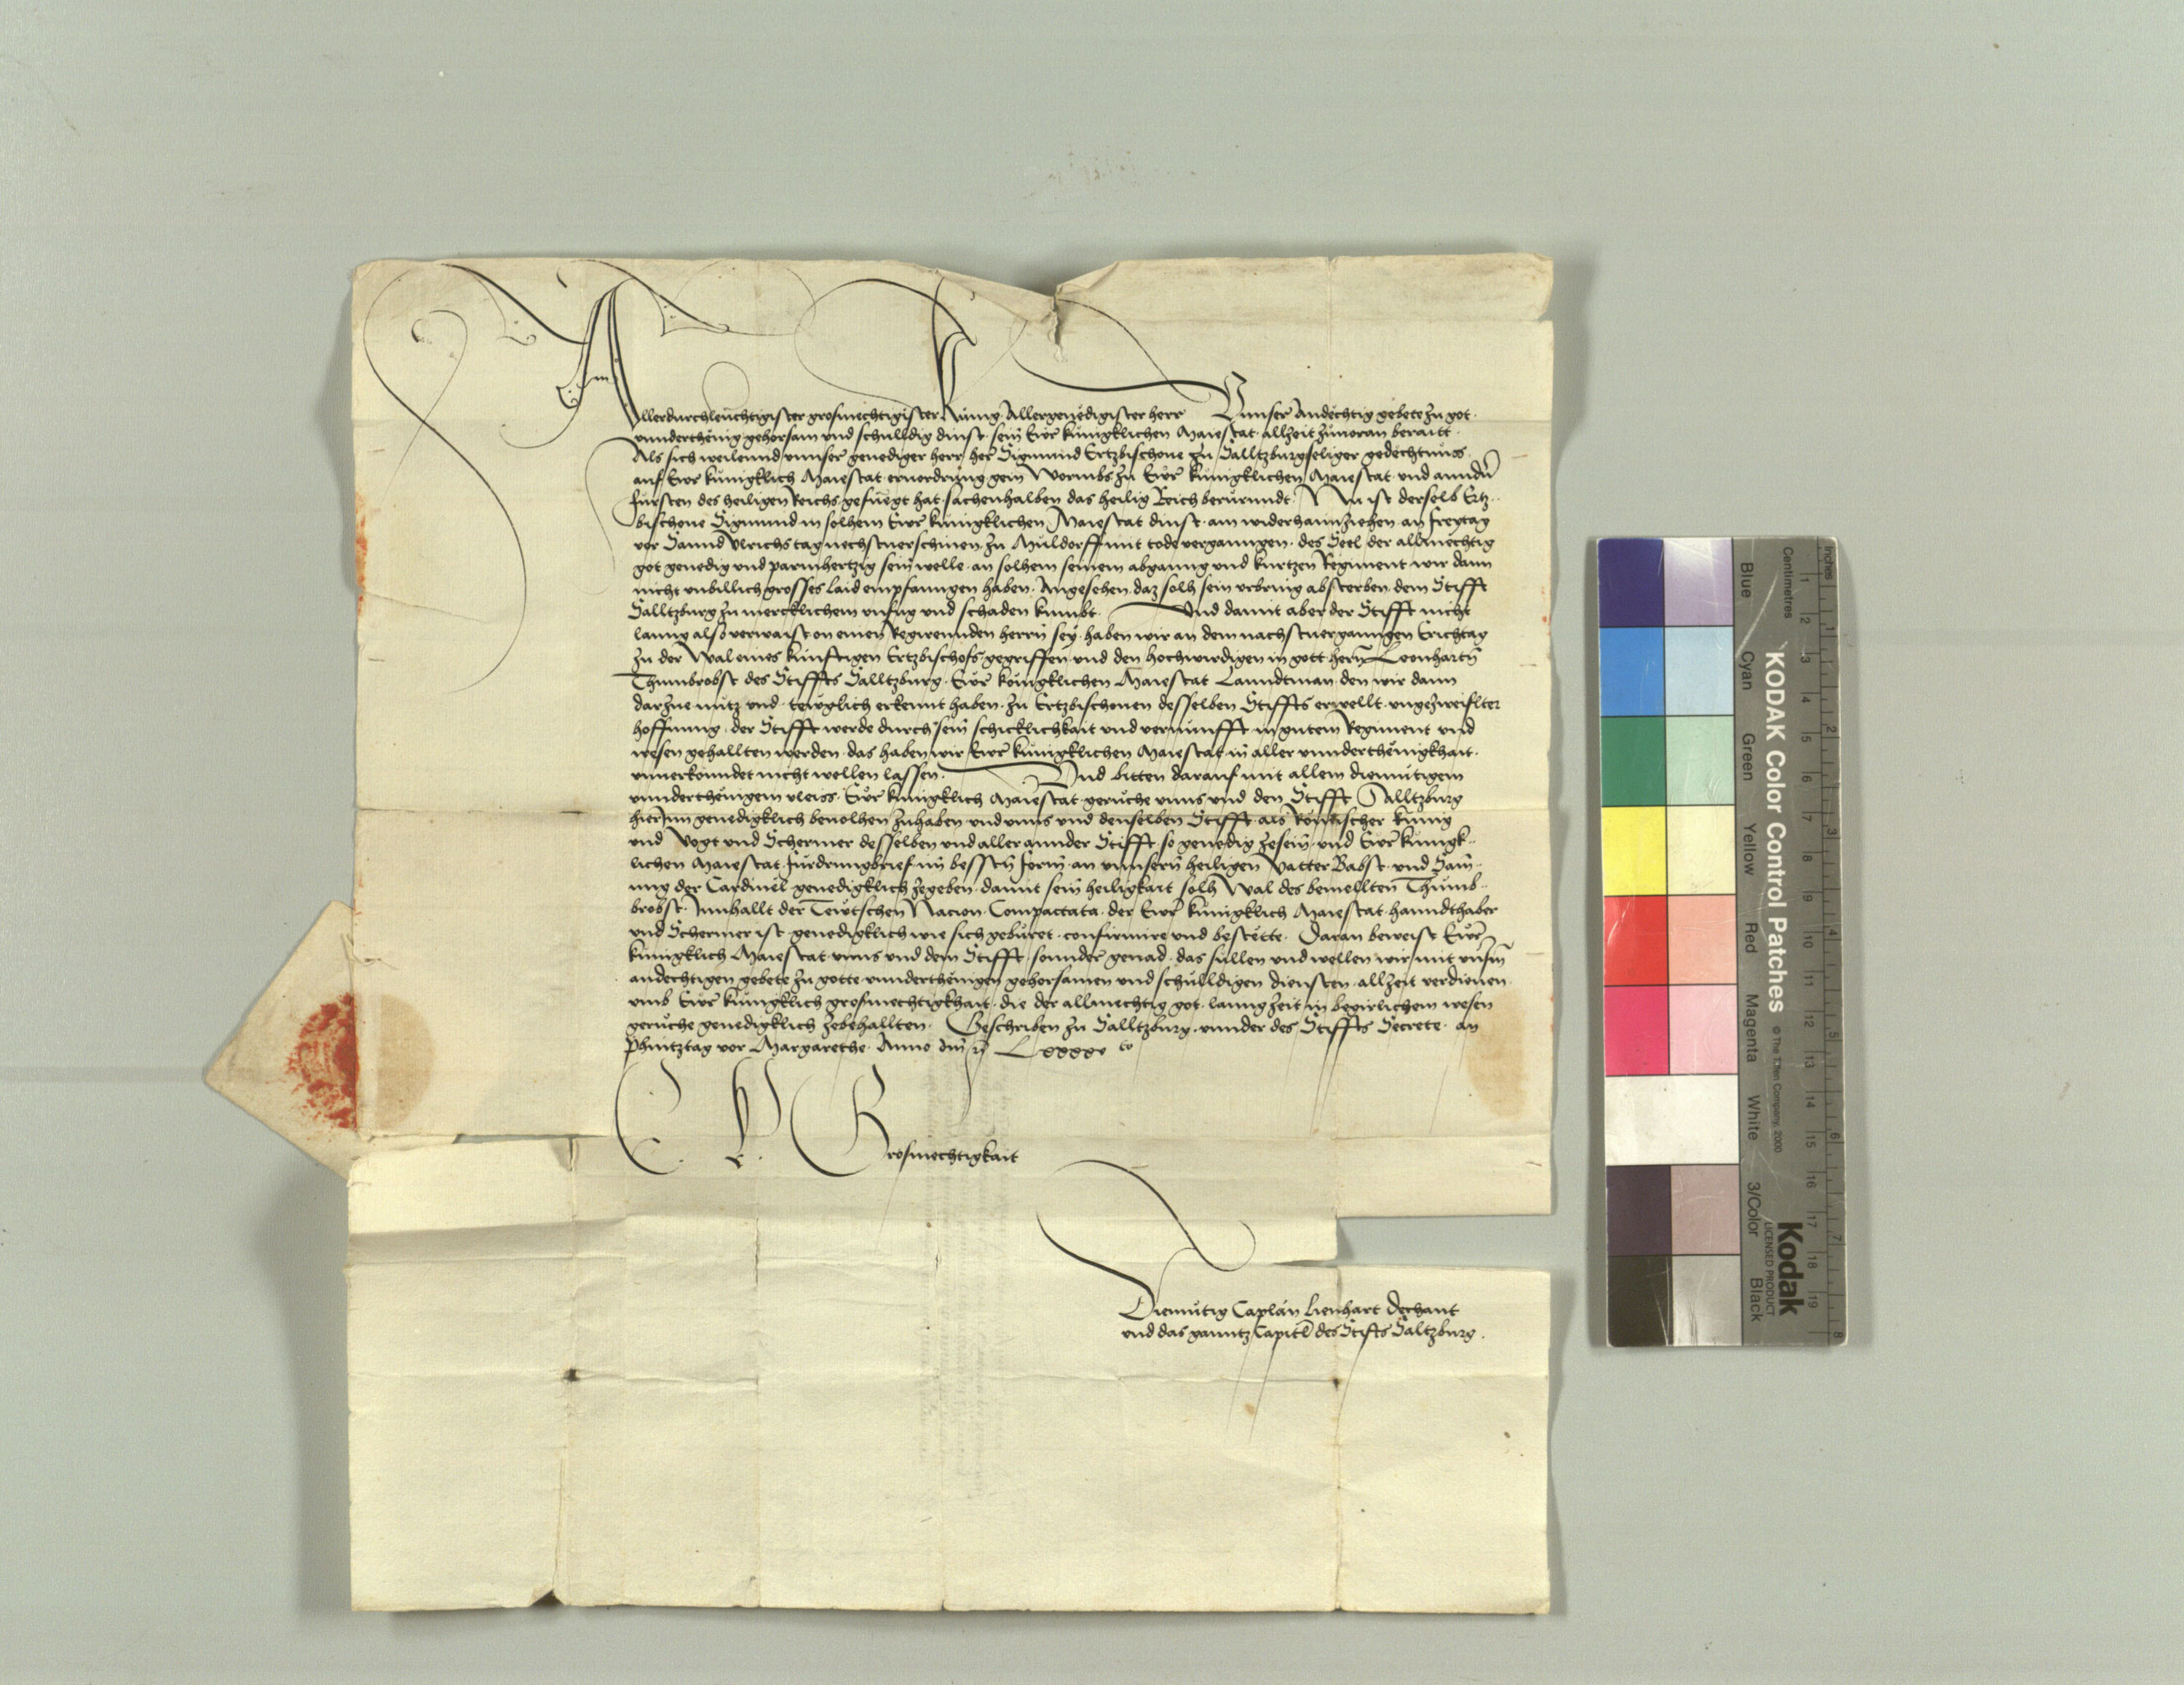 Allerdurchleuchtigister grosmechtigister Kunig Allergenedigister herr Vnnser Andechtig gebete zu got
vnnderthenig gehorsam vnd schulldig dinst sein Ewr kunigklichen Maiestat allzeit zuuoran beraitt
Als sich weilennd vnnser genediger herr her Sigmund Ertzbischoue zu Salltzburg seliger gedechtnuss
auf Ewr kunigklich Maiestat eruordrung gein Wormbs zu Ewr kunigklichen Maiestat vnd anndern
fursten des heiligen Reichs gefuegt hat sachenhalben das heilig Reich berurundt Nu ist derselb Ertz
bischoue Sigmund in solhem Ewr kunigklichen Maiestat dinst am widerhaimziehen an freytag
vor Sannd Vlrichs tag nechstuerschinen zu Muldorff mit tode vergangen des Seel der allmechtig
got genedig vnd parmhertzig sein welle an solhem seinem abganng vnd kurtzen Regiment wir dann
nicht vnbillich grosses laid empfanngen haben Angesehen daz solh sein vrbring absterben dem Stifft
Salltzburg zu mercklichem vnfug vnd schaden kumbt Vnd damit aber der Stifft nicht
lanng also verwaist on einen Regirennden herrn sey haben wir an dem nachstuergangen Erichtag
zu der Wal eines kunftigen Ertzbischofs gegriffen vnd den hochwirdigen in gott hern Leonharten
Thumbrobst des Stiffts Salltzburg Ewr konigklichen Maiestat Lanndtman den wir dann
darzue nutz vnd tewglich erkennt haben zu Ertzbischouen desselben Stiffts erwellt vngezweiflter
hoffnung der Stifft werde durch sein schicklichkait vnd vernunfft in gutem Regiment vnd
wesen gehallten werden das haben wir Ewr kunigklichen Maiestat in aller vnnderthenigkhait
vnuerkonndet nicht wellen lassen Vnd bitten darauf mit allem diemutigem
vnnderthenigem vleiss Ewr kunigklich Maiestat geruche vnns vnd den Stifft Salltzburg
hierInn genedigklich beuolhen zuhaben vnd vnns vnd denselben Stifft als Romischer kunig
vnd Vogt vnd Schermer desselben vnd aller annder Stifft so genedig zesein vnd Ewr kunigk
lichen Maiestat furdrungbrief in besstn form an vnnsern heiligen Vatter Babst vnd Sam
ung der Cardinel genedigklich zegeben damit sein heiligkait solh Wal des bemellten Thumb
brobst Innhallt der Tewtschen Nacion Compactata der Ewr kunigklich Maiestat hanndthaber
vnd Schermer ist genedigklich wie sich geburet confirmire vnd bestette Daran beweist Ewr
kunigklich Maiestat vnns vnd dem Stifft sonnder genad das sullen vnd wellen wir mit vnsrn
andechtigen gebete zu gotte vnnderthenigen gehorsamen vnd schulldigen diensten allzeit verdienen
vmb Ewr kunigklich grosmechtigkhait die der allmechtig got lanng zeit in begirlichem wesen
geruche genedigklich zebehallten Geschriben zu Salltzburg vnnder des Stiffts Secrete an
Phintztag vor Margarethe Anno dm
E k Grosmechtigkait
Diemutig Caplan Lienhart Dechant
vnd das ganntz Capitel des Stifts Saltzburg
Inches
Centimetres
Blue Cyan Green Yellow Red Magenta White 3/Color Black
KODAK Color Control Patches
© The Tiffen Company, 2000
Kodak
LICENSED PRODUCT